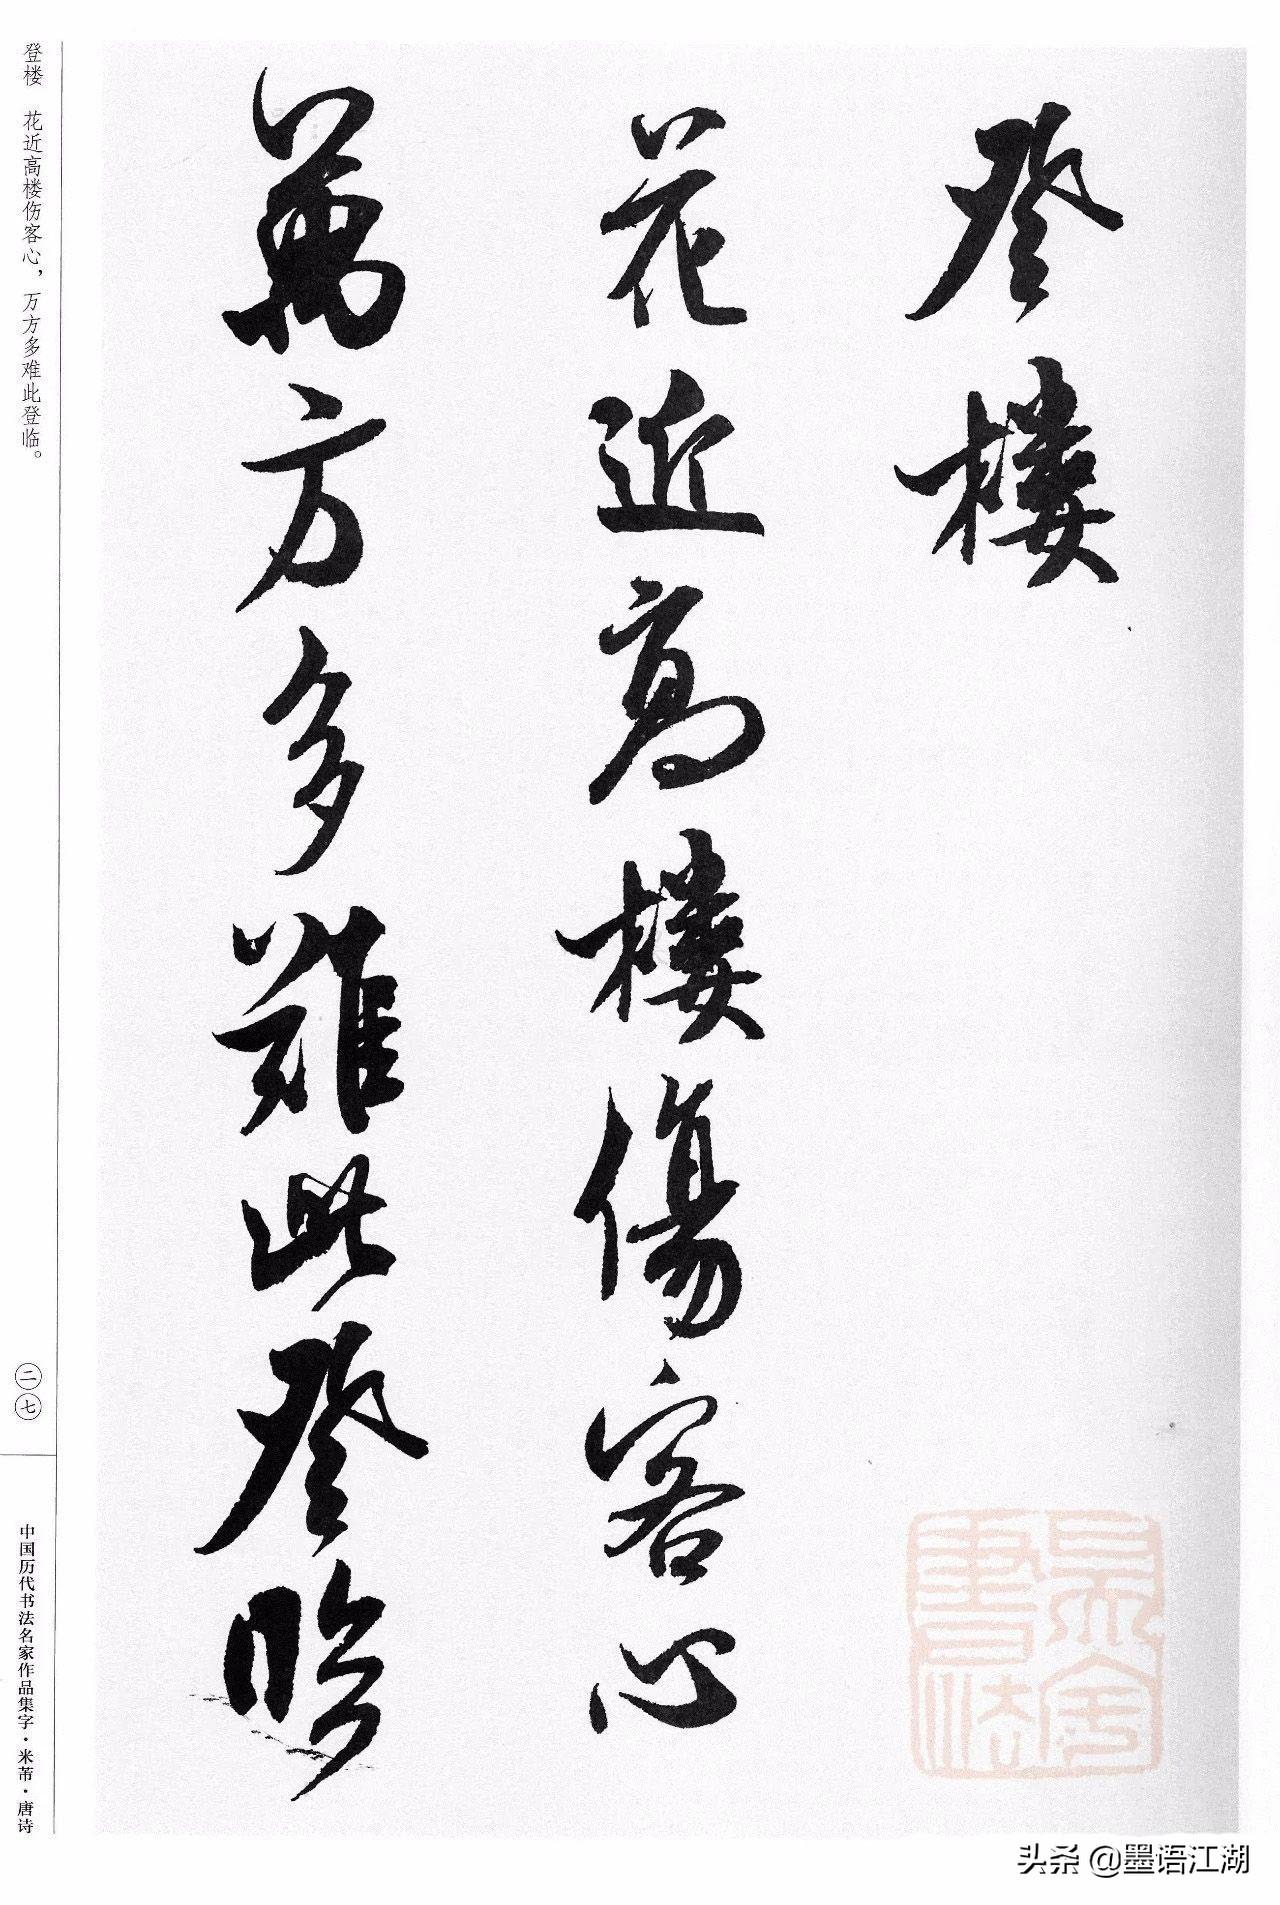 登樓
花近高樓傷客心
萬方多難此登臨
登楼 花近高楼伤客心，万方多难此登临。
二七
中国历代书法名家作品集字·米芾·唐诗
头条 @墨语江湖